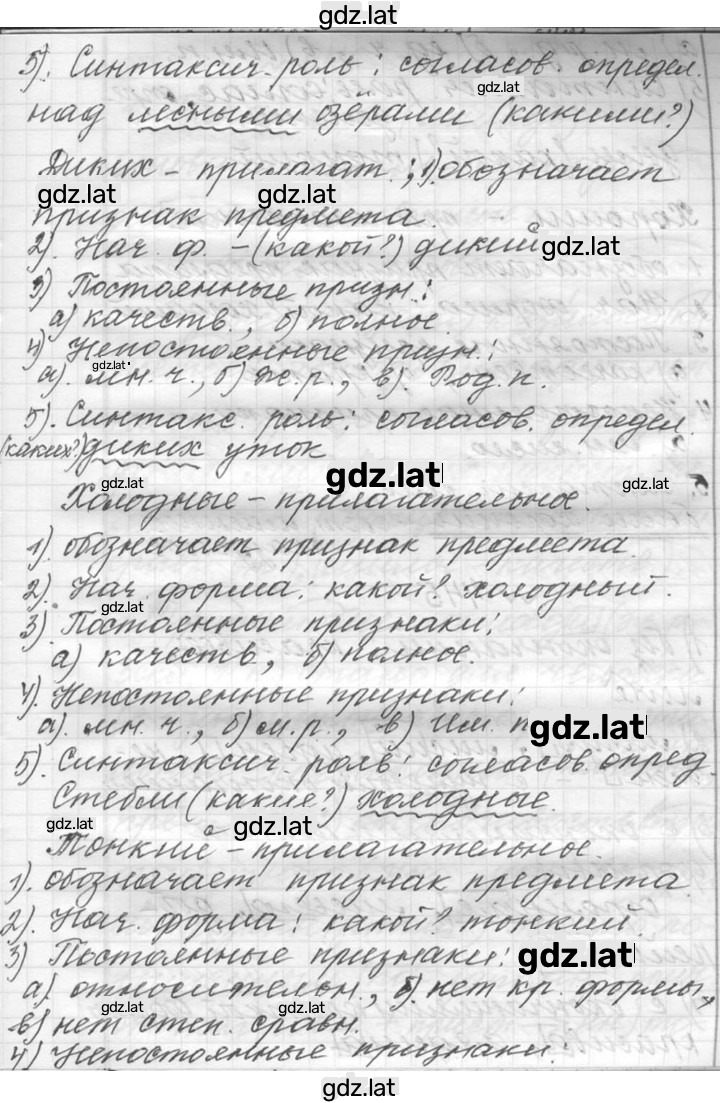 gdz.lat
5). Синтаксич. роль: согласов. определ.
gdz.lat
над лесными озёрами (какими?)
Диких – прилагат.; 1) обозначает
gdz.lat gdz.lat
признак предмета.
2). Нач. ф. – (какой?) дикий gdz.lat
3) Постоянные призн.:
а) качеств., б) полное.
4). Непостоянные призн.:
gdz.lat
а). мн. ч., б) ж. р., в). Род. п.
5). Синтакс. роль: согласов. определ.
(каких?) диких уток
gdz.lat gdz.lat
Холодные – прилагательное.
1). обозначает признак предмета.
2). Нач. форма: какой? холодный.
gdz.lat
3). Постоянные признаки:
а) качеств, б) полное.
4). Непостоянные признаки:
а). мн. ч., б) м. р., в) Им. п gdz.lat
5). Синтаксич. роль: согласов. опред.
Стебли (какие?) холодные.
gdz.lat gdz.lat
Тонкие – прилагательное.
1). обозначает признак предмета.
2). Нач. форма: какой? тонкий.
3) Постоянные признаки: gdz.lat
а) относителен., б). нет кр. формы,
gdz.lat gdz.lat
в) нет степ. сравн.
4) Непостоянные признаки:
gdz.lat